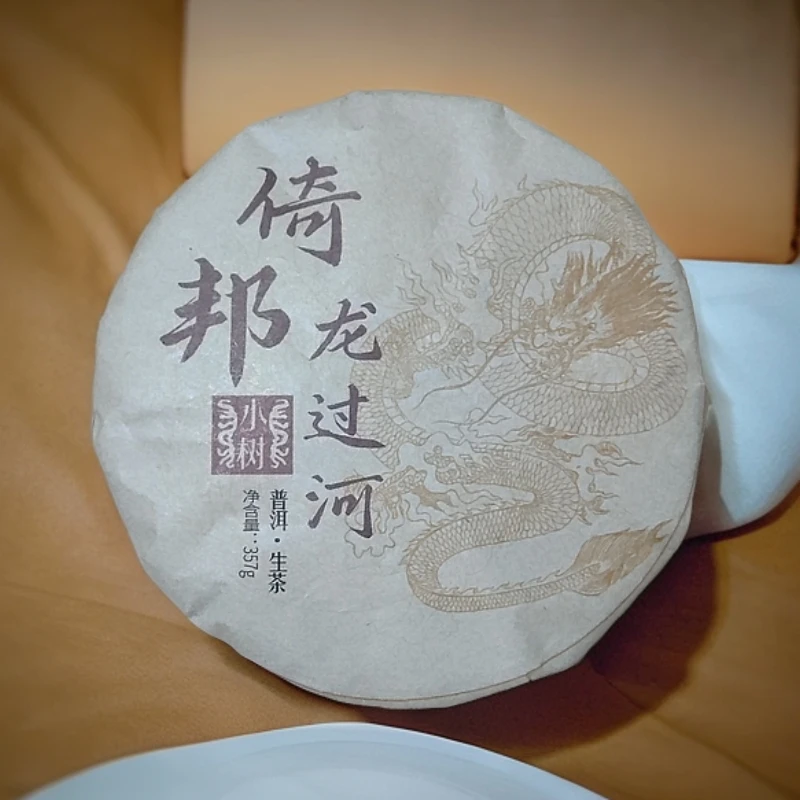 倚邦
龙过河
小树
普洱·生茶
净含量:357g